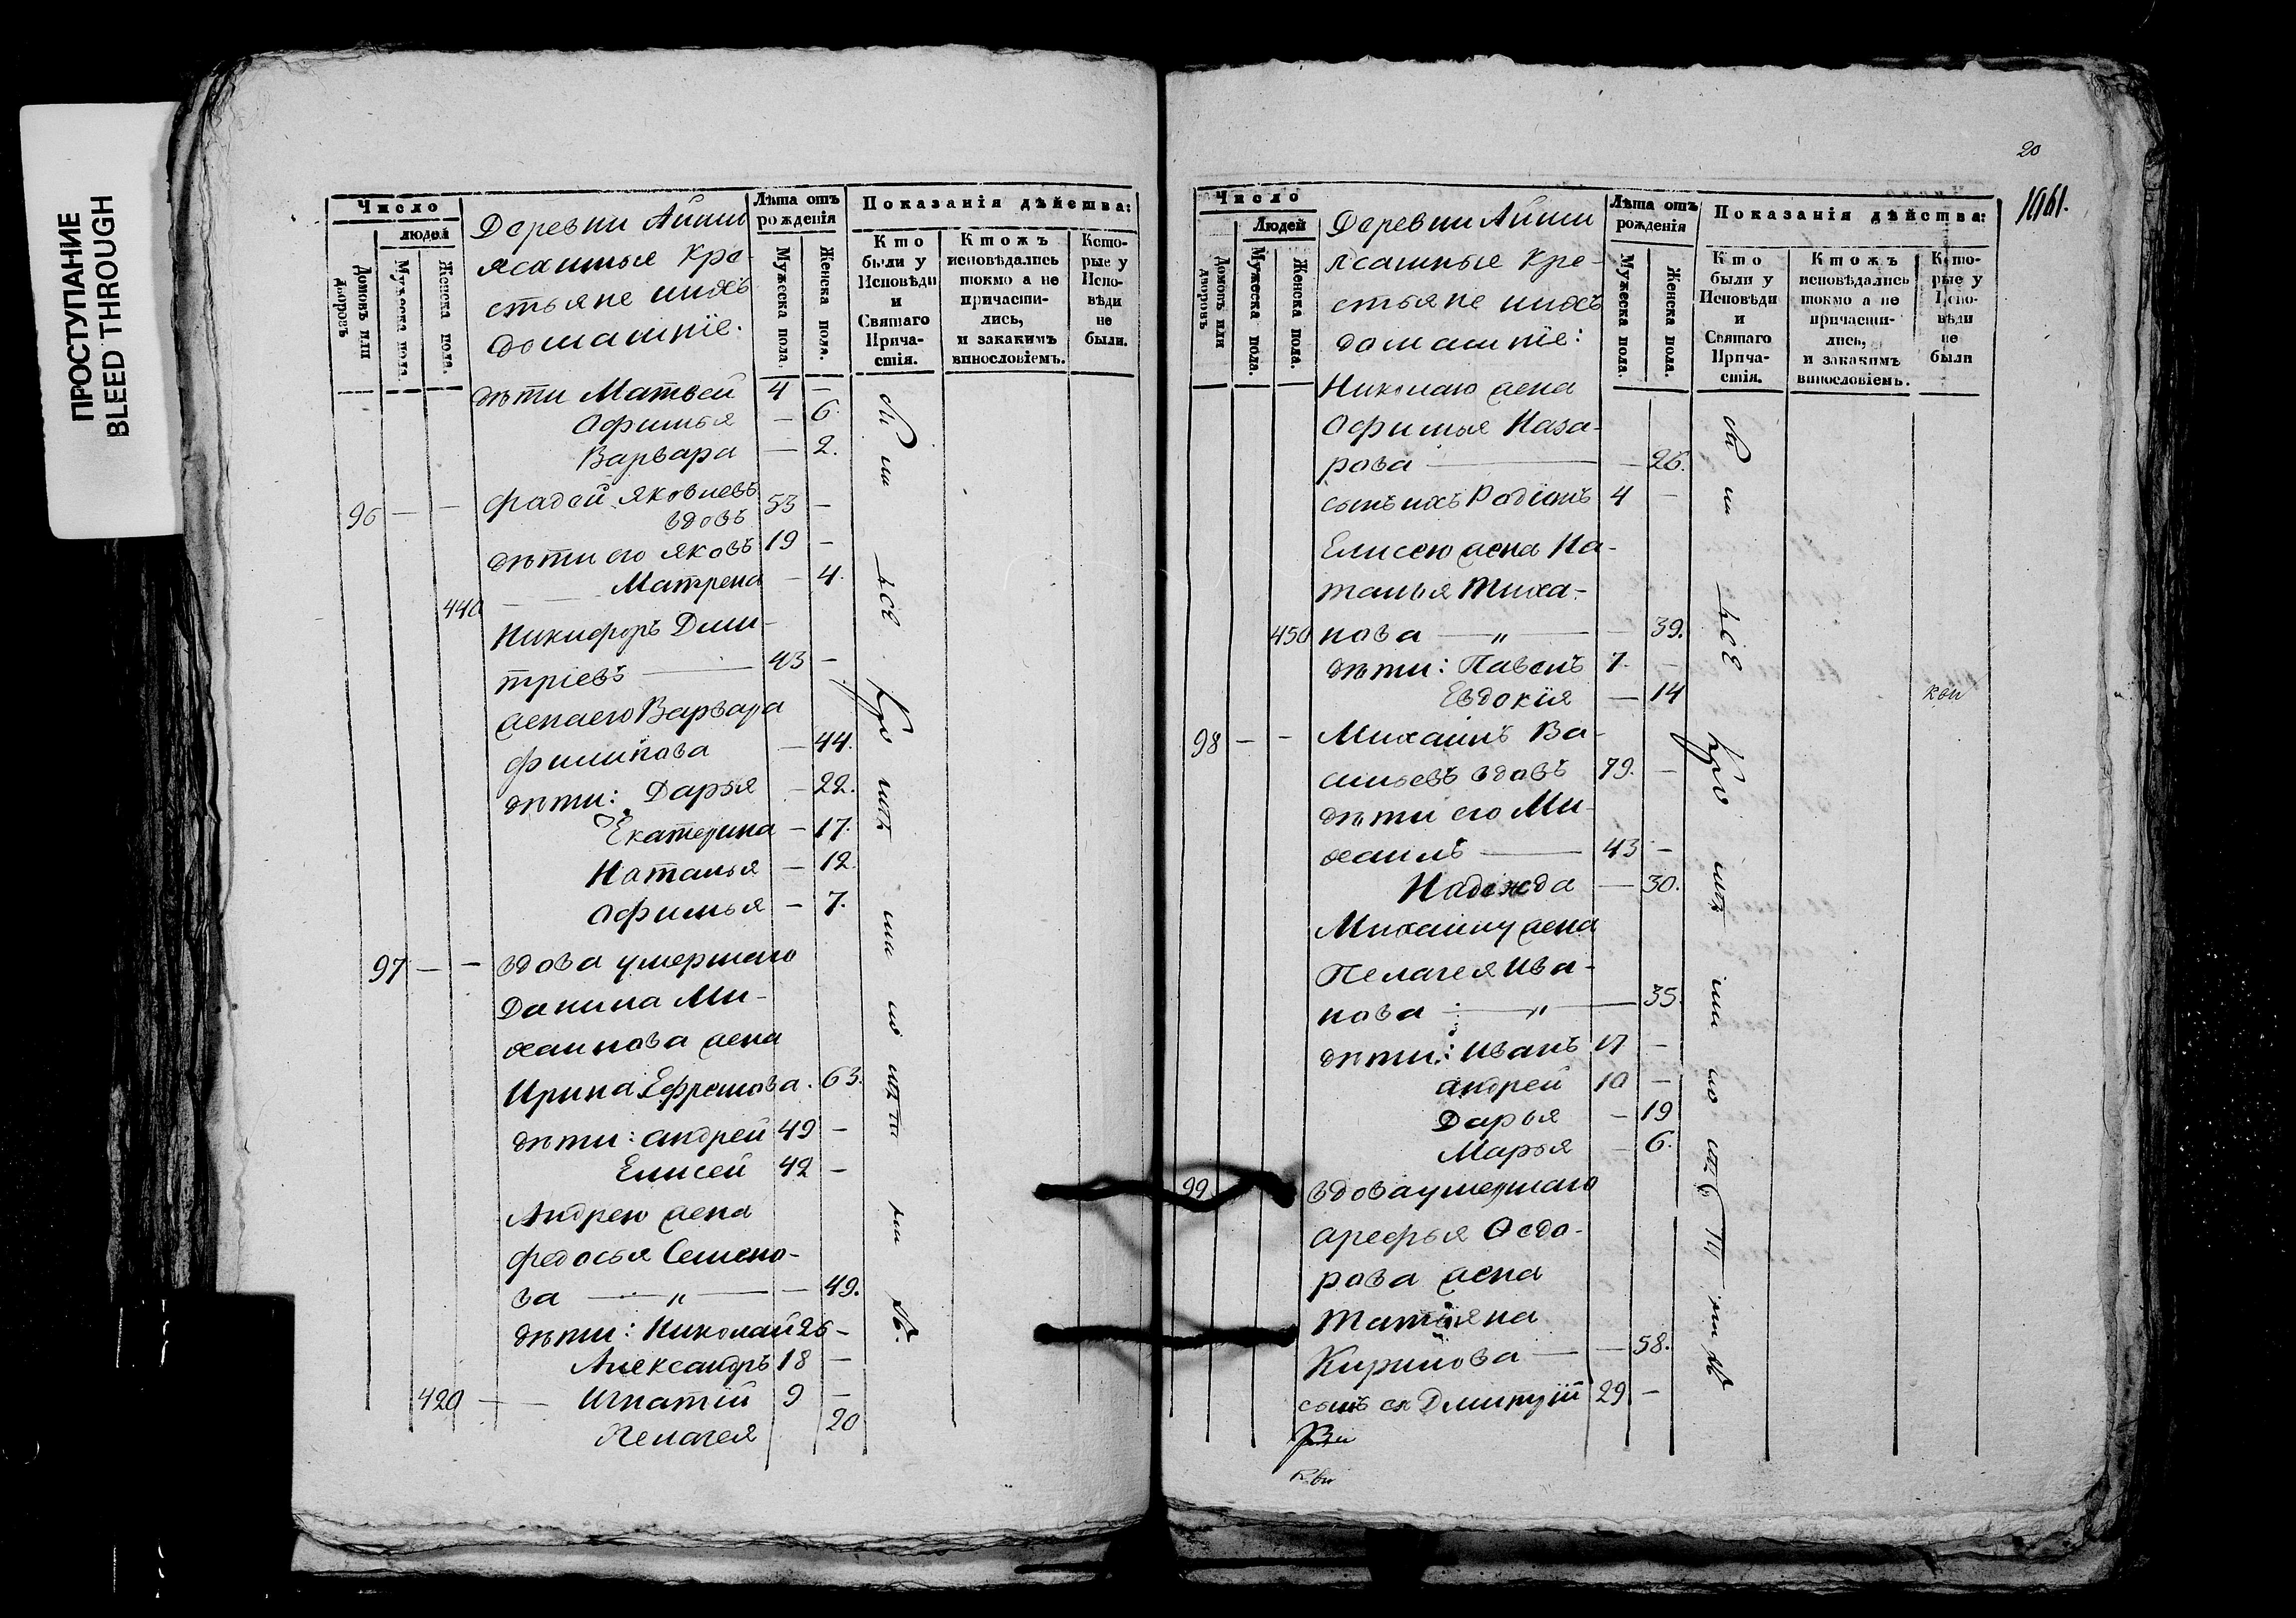 ПРОСТУПАНИЕ
BLEED THROUGH
Число
людей
Домовъ или дворовъ
Мужеска пола.
Женска пола.
Деревни Айши
ясашные Кре-
стьяне ииxъ
домашніе.
Лѣта отъ рожденія
Мужеска пола
Женска пола.
Показанія дѣйства:
Кто были у Исповѣди и Святаго Причастія.
Ктожъ исповѣдались токмо а не причасти-лись, и закакимъ винословіемъ.
Кото-рые у Испо-вѣди не были.
дѣти Матвей 4 –
Офимья – 6.
Варвара – 2.
96 – – Фадей Яковлевъ
вдовъ 53 –
дѣти его Яковъ 19 –
440 Матрена – 4.
Никифоръ Дми-
тріевъ — 43 –
жена его Варвара
Филипова – 44.
дѣти: Дарья – 22.
Екатерина – 17.
Наталья – 12.
Офимья – 7.
97 – – вдова умершаго
Данила Ми-
хаилова жена
Ирина Ефремова. 63.
дѣти: Андрей 49 –
Елисей 42 –
Андрею жена
Федосья Семено-
ва — „ — – 49.
дѣти: Николай 26 –
Александръ 18 –
420 – – Игнатій 9 –
Пелагея 20
20
1061.
Число
Людей
Домовъ или дворовъ
Мужеска пола.
Женска пола.
Деревни Айши
Ясашные Кре-
стьяне ииxъ
домашніе:
Лѣта отъ рожденія
Мужеска пола.
Женска пола.
Показанія дѣйства:
Кто были у Исповѣди и Святаго Прича-стія.
Ктожъ исповѣдались токмо а не причасти-лись, и закакимъ винословіемъ.
Кото-рые у Испо-вѣди не были
Николаю жена
Офимья Наза-
рова — – 26.
сынъ ихъ Родіонъ 4 –
Елисею жена На-
талья Тиха-
450 нова — „ — – 39.
дѣти: Павелъ 7. –
Евдокія – 14
98 – – Михаилъ Ва-
сильевъ вдовъ 79. –
дѣти его Ми-
хаилъ — 43 –
Надежда – 30.
Михаилу жена
Пелагея Ива-
нова — „ — 35.
дѣти: Иванъ 17 –
Андрей 10 –
Дарья – 19
Марья – 6.
99 вдова умершаго
Арефья Федо-
рова жена
Татіяна
Кирилова — – 58.
сынъ ея Дмитрій 29 –